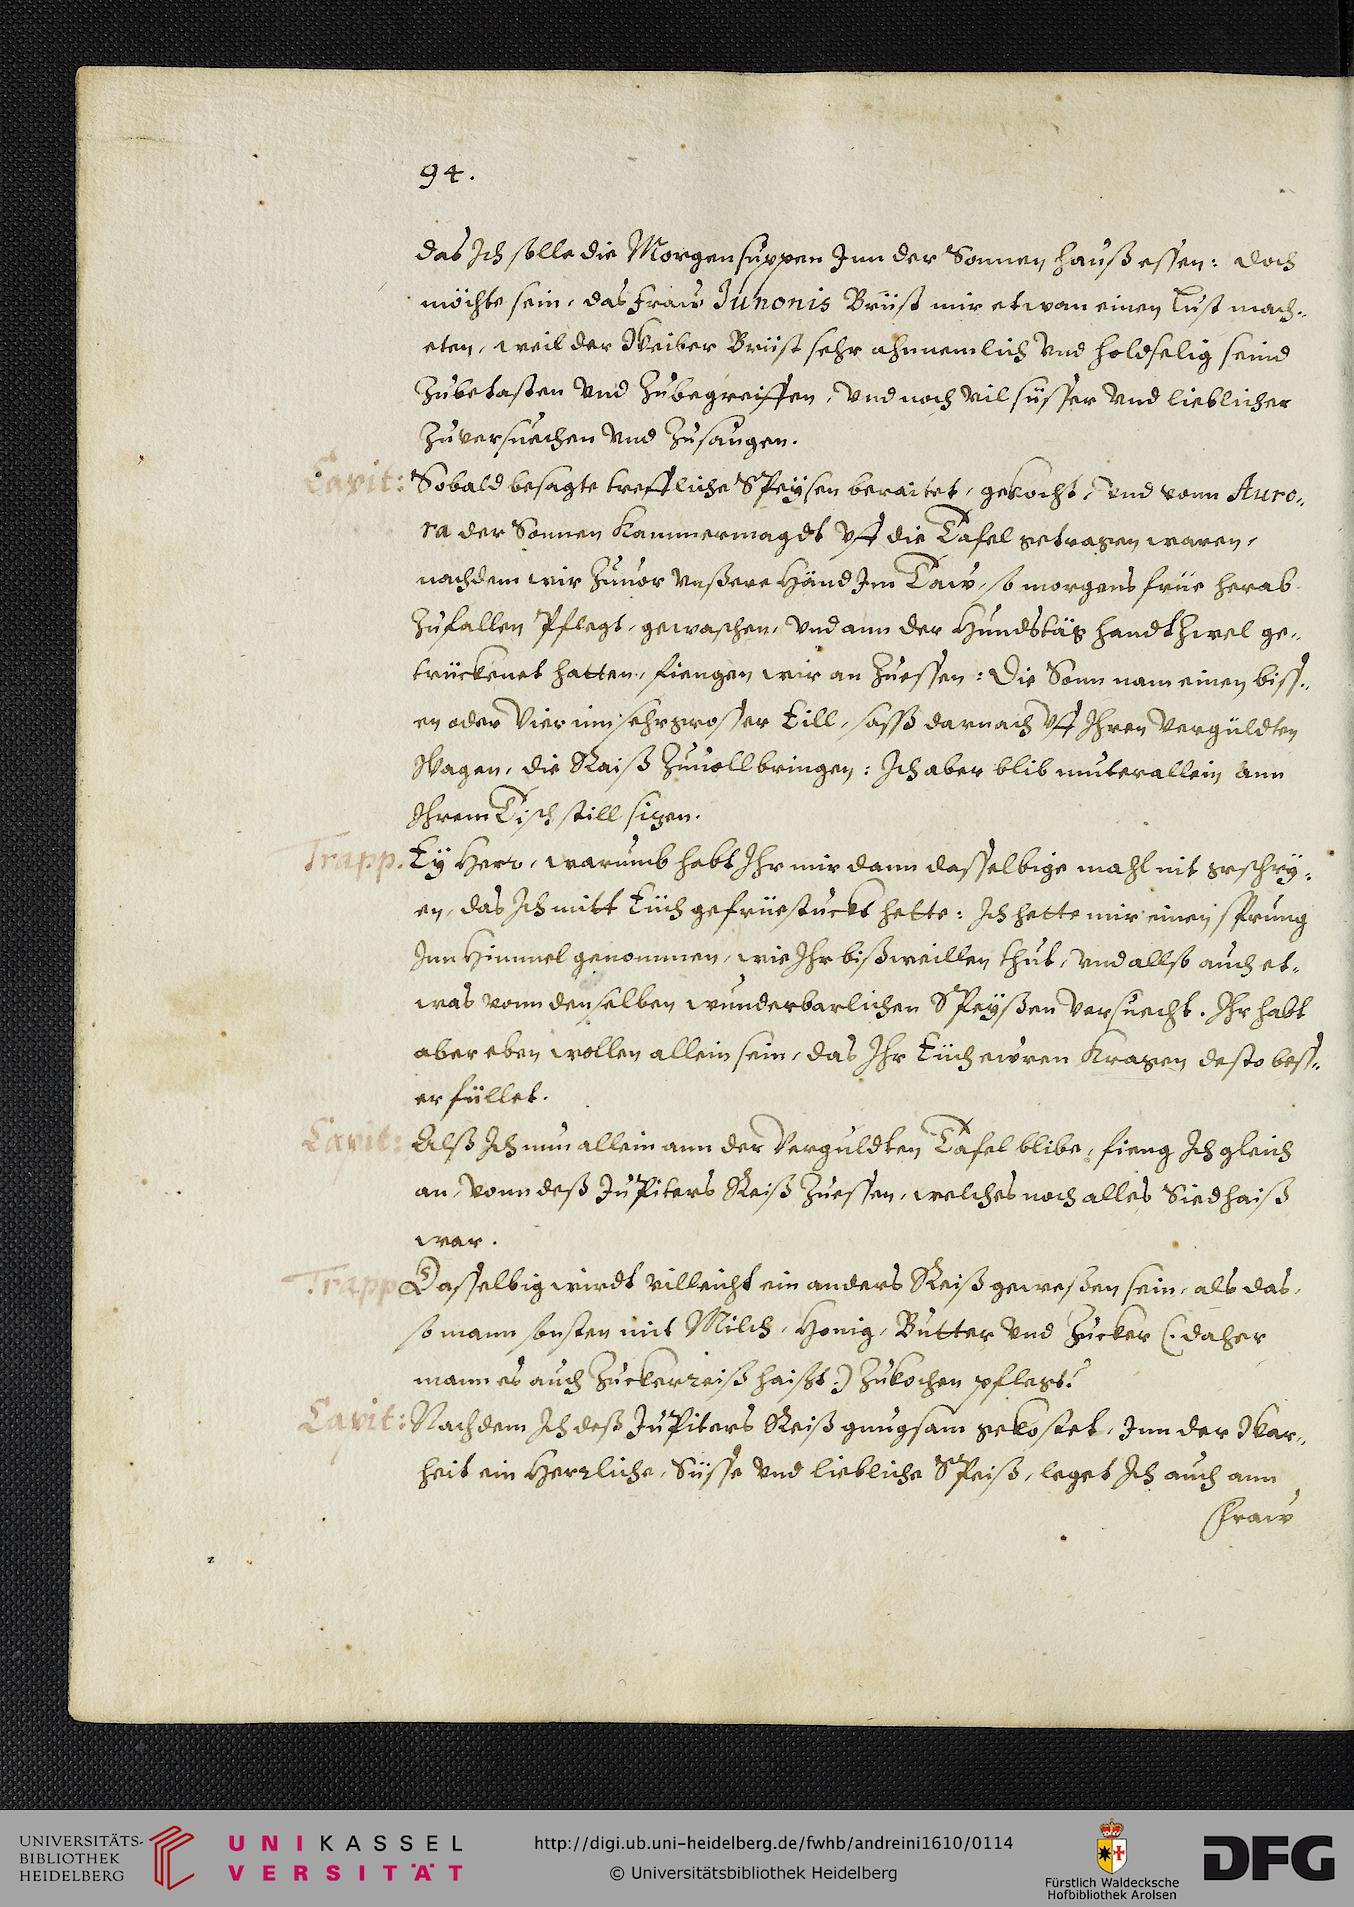 94.
das Ich solle die Morgensuppen Inn der Sonnen hauß essen: doch
möchte sein, das fraw Junonis Brüst mir etwan einen lust mach-
eten, weil der Weiber Brüst sehr ahnnemlich vnd holdselig seind
Zubetasten vnd Zubegreiffen, vnd noch vil süsser vnd lieblicher
Zuuersuechen vnd Zusaugen.
Capit: Sobald besagte treffliche Speÿsen beraitet, gekocht, vnd vonn Auro-
ra der Sonnen Kammermagdt vff die Tafel getragen waren,
nachdem wir Zuuor vnßere Händ Im Taw, so morgens früe herab
Zufallen Pflegt, gewaschen, vnd ann der Hundstäg handthwel ge-
trückenet hatten, fiengen wir an Zuessen: Die Sonn nam einen biss-
en oder Vier inn sehr grosser Eill, saß darnach vff Ihren Vergüldten
Wagen, die Raiß Zuuollbringen: Ich aber blib muterallein ann
Ihrem Tisch still sizen.
Trapp. Eÿ Herr, warumb habt Ihr mir dann dasselbige mahl nit geschrÿ-
en, das Ich mitt Euch gefrüestuckt hette: Ich hette mir einen sprung
Inn Himmel genommen, wie Ihr bißweillen thut, vnd allso auch et-
was vonn denselben wunderbarlichen Speÿßen versuecht. Ihr habt
aber eben wollen allein sein, das Ihr Euch ewren Kragen desto bess-
er füllet.
Capit: Alß Ich nun allein ann der Verguldten Tafel blibe, fieng Ich gleich
an, vonn deß Jupiters Reiß Zuessen, welches noch alles Siedhaiß
war.
Trapp Dasselbig wirdt villeicht ein anders Reiß geweßen sein, als das,
so mann sonsten mit Milch, Honig, Butter vnd Zucker (: daher
mann es auch Zuckerreiß haißt:) Zukochen pflegt?
Capit: Nachdem Ich deß Jupiters Reiß gnugsam gekostet, Inn der War-
heit ein Herrliche, Süsse vnd liebliche Speiß, leget Ich auch ann
fraw
UNIVERSITÄTS-
BIBLIOTHEK
HEIDELBERG
UNIKASSEL
VERSITÄT
http://digi.ub.uni-heidelberg.de/fwhb/andreini1610/0114
© Universitätsbibliothek Heidelberg
Fürstlich Waldecksche
Hofbibliothek Arolsen
DFG